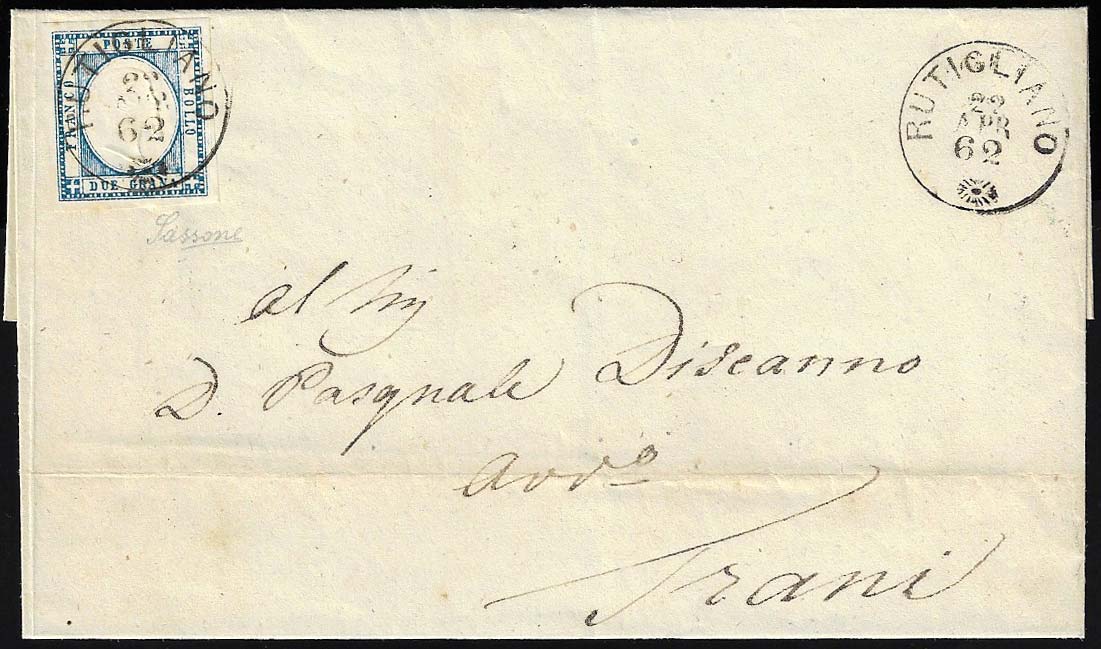 POSTE
FRANCO
BOLLO
DUE GRANA
RUTIGLIANO
22
APR
62
RUTIGLIANO
22
APR
62
Sassone
al Sig
D. Pasquale Discanno
Avvo
Trani